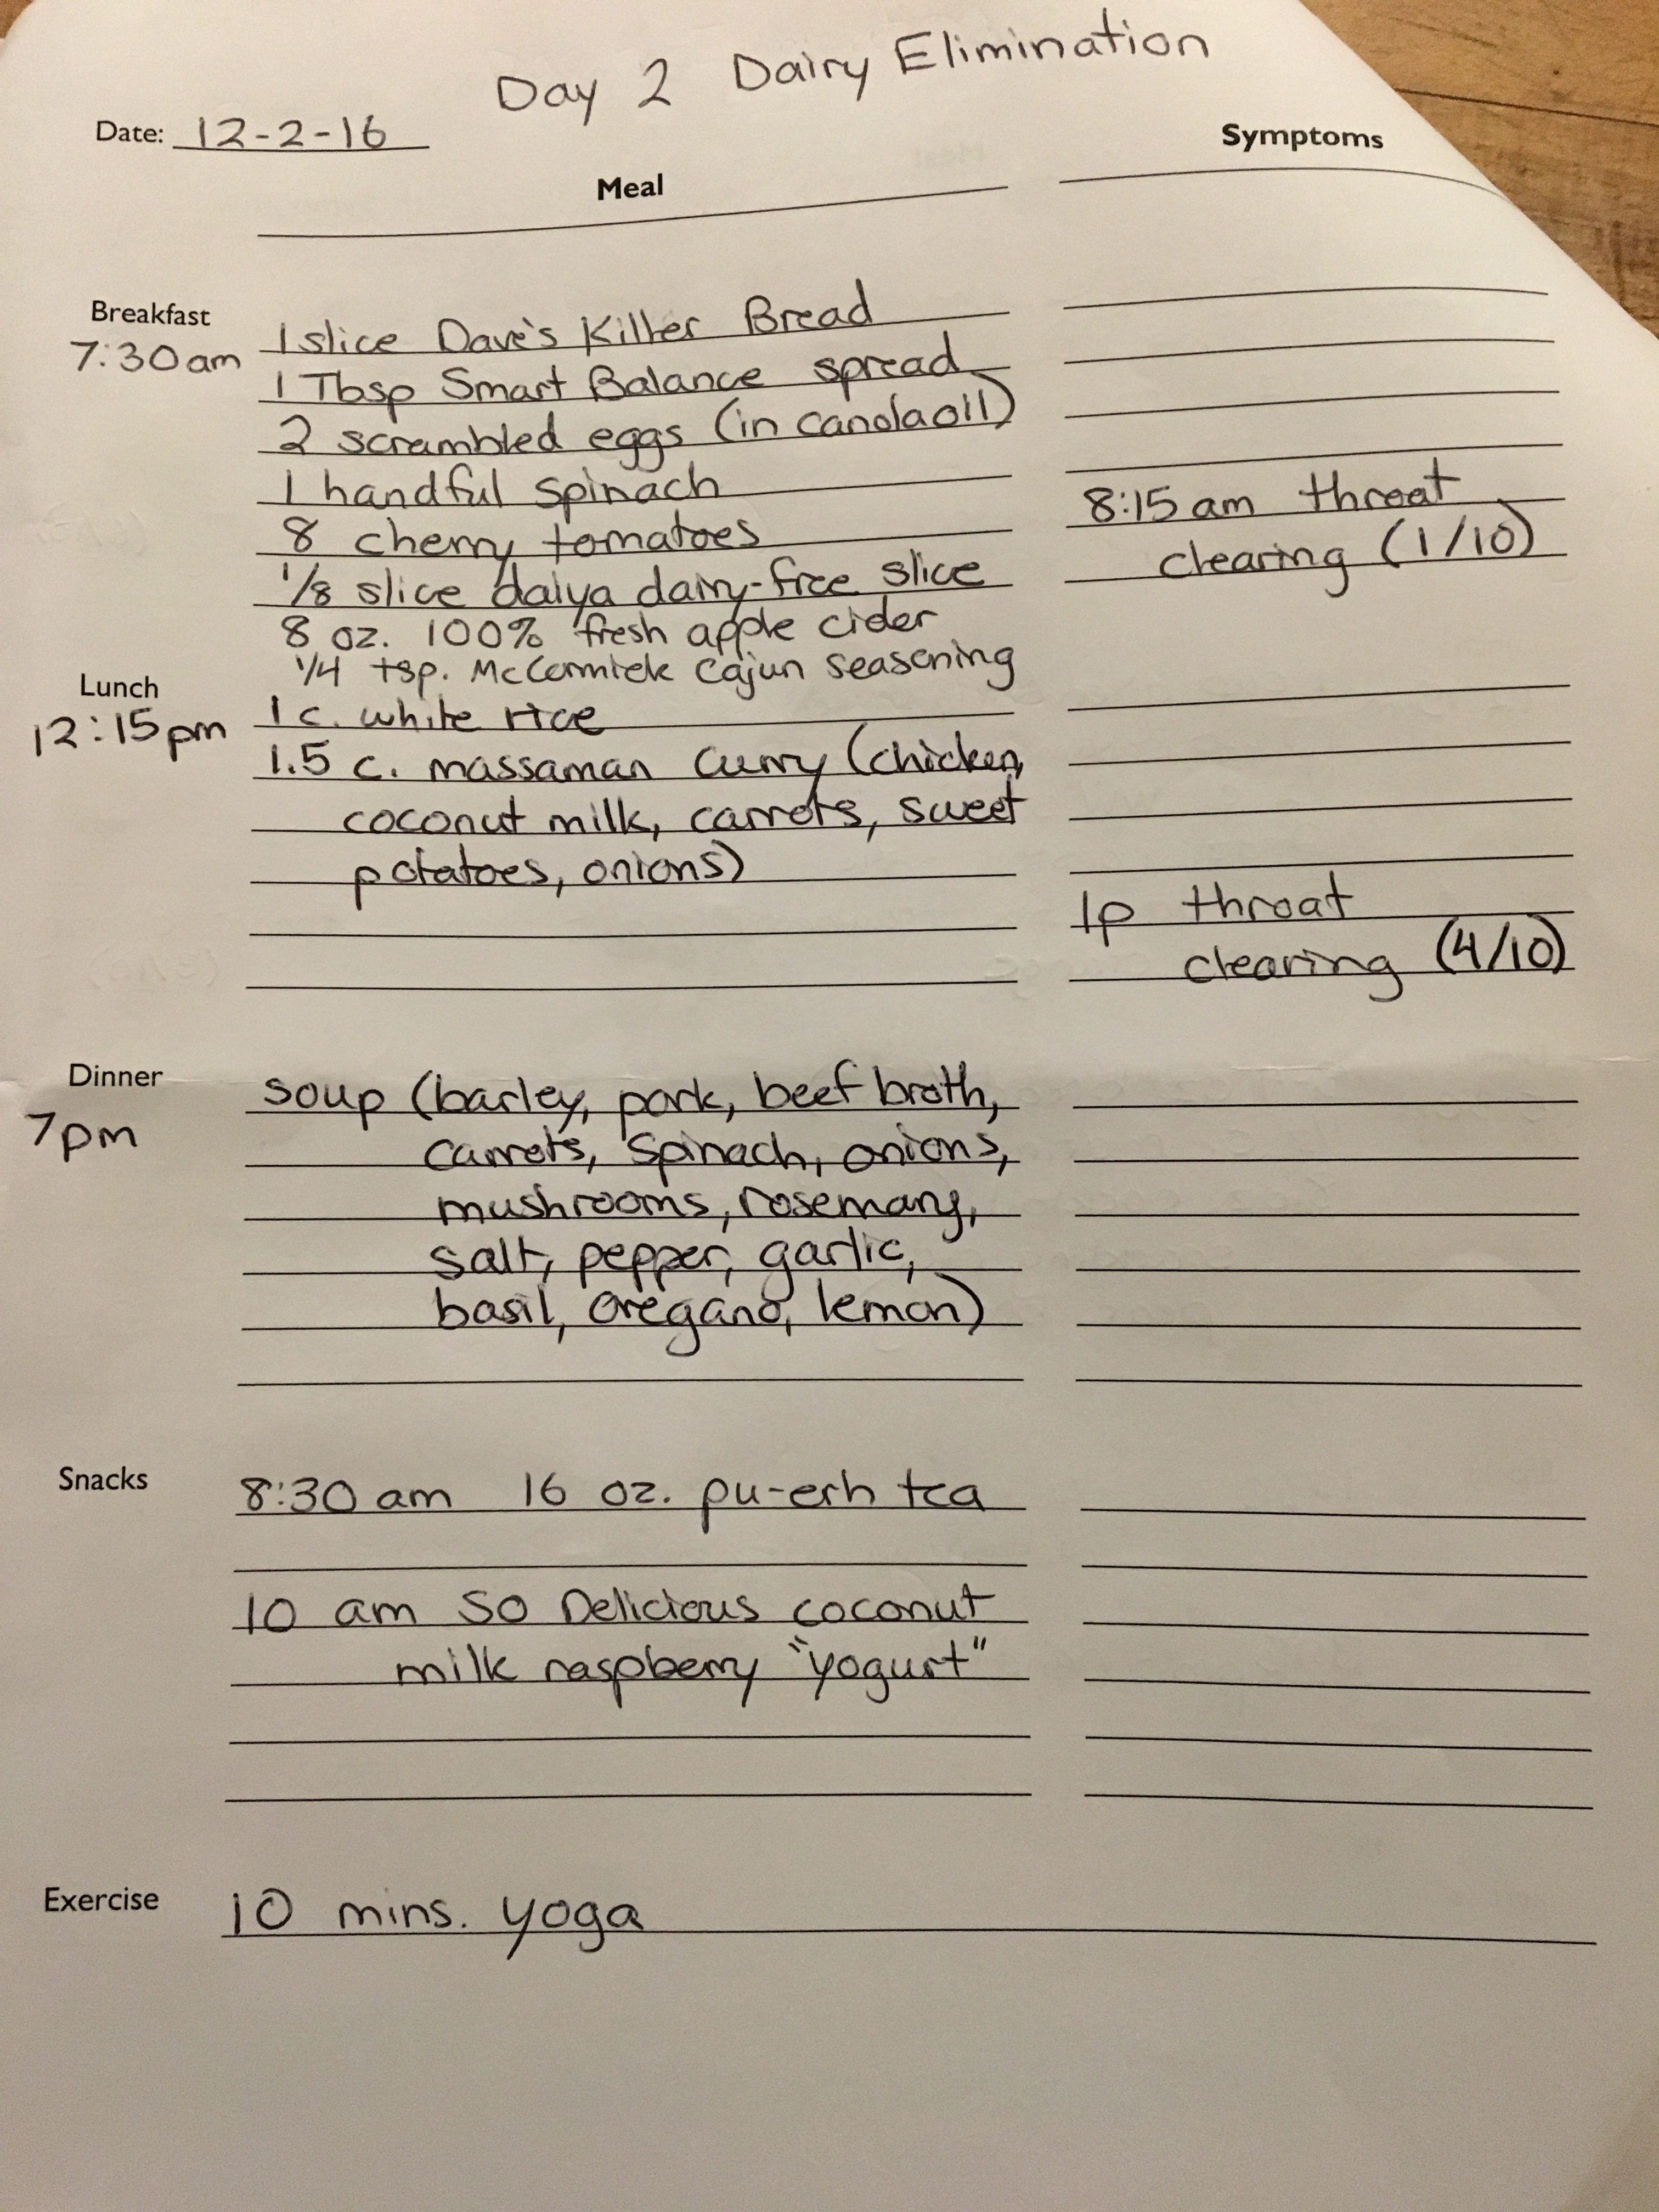 Day 2 Dairy Elimination
Date: 12-2-16
Symptoms
Meal
Breakfast
7:30am
1 slice Dave's Killer Bread
1 Tbsp Smart Balance spread
2 scrambled eggs (in canola oil)
1 handful spinach
8 cherry tomatoes
1/8 slice daiya dairy-free slice
8 oz. 100% fresh apple cider
1/4 tsp. McCormick Cajun seasoning
8:15 am throat
clearing (1/10)
Lunch
12:15pm
1 c. white rice
1.5 c. massaman curry (chicken,
coconut milk, carrots, sweet
potatoes, onions)
1p throat
clearing (4/10)
Dinner
7pm
soup (barley, pork, beef broth,
carrots, spinach, onions,
mushrooms, rosemary,
salt, pepper, garlic,
basil, oregano, lemon)
Snacks
8:30 am 16 oz. pu-erh tea
10 am SO Delicious coconut
milk raspberry "yogurt"
Exercise
10 mins. yoga